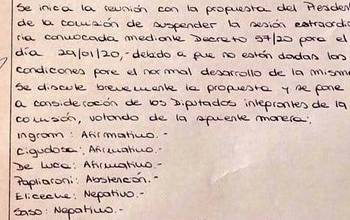 Se inicia la reunión con la propuesta del Presiden
de la comisión de suspender la sesión extraordi
ria convocada mediante Decreto 57/20 para el
día 29/01/20,- debido a que no están dadas las
condiciones para el normal desarrollo de la misma
Se discute brevemente la propuesta y se pone
a consideración de los Diputados integrantes de la
comisión, votando de la siguiente manera:
Ingram: Afirmativo.-
Cigudosa: Afirmativo.-
De Luca: Afirmativo.-
Pagliaroni: Abstención.-
Eliceche: Negativo.-
Saso: Negativo.-